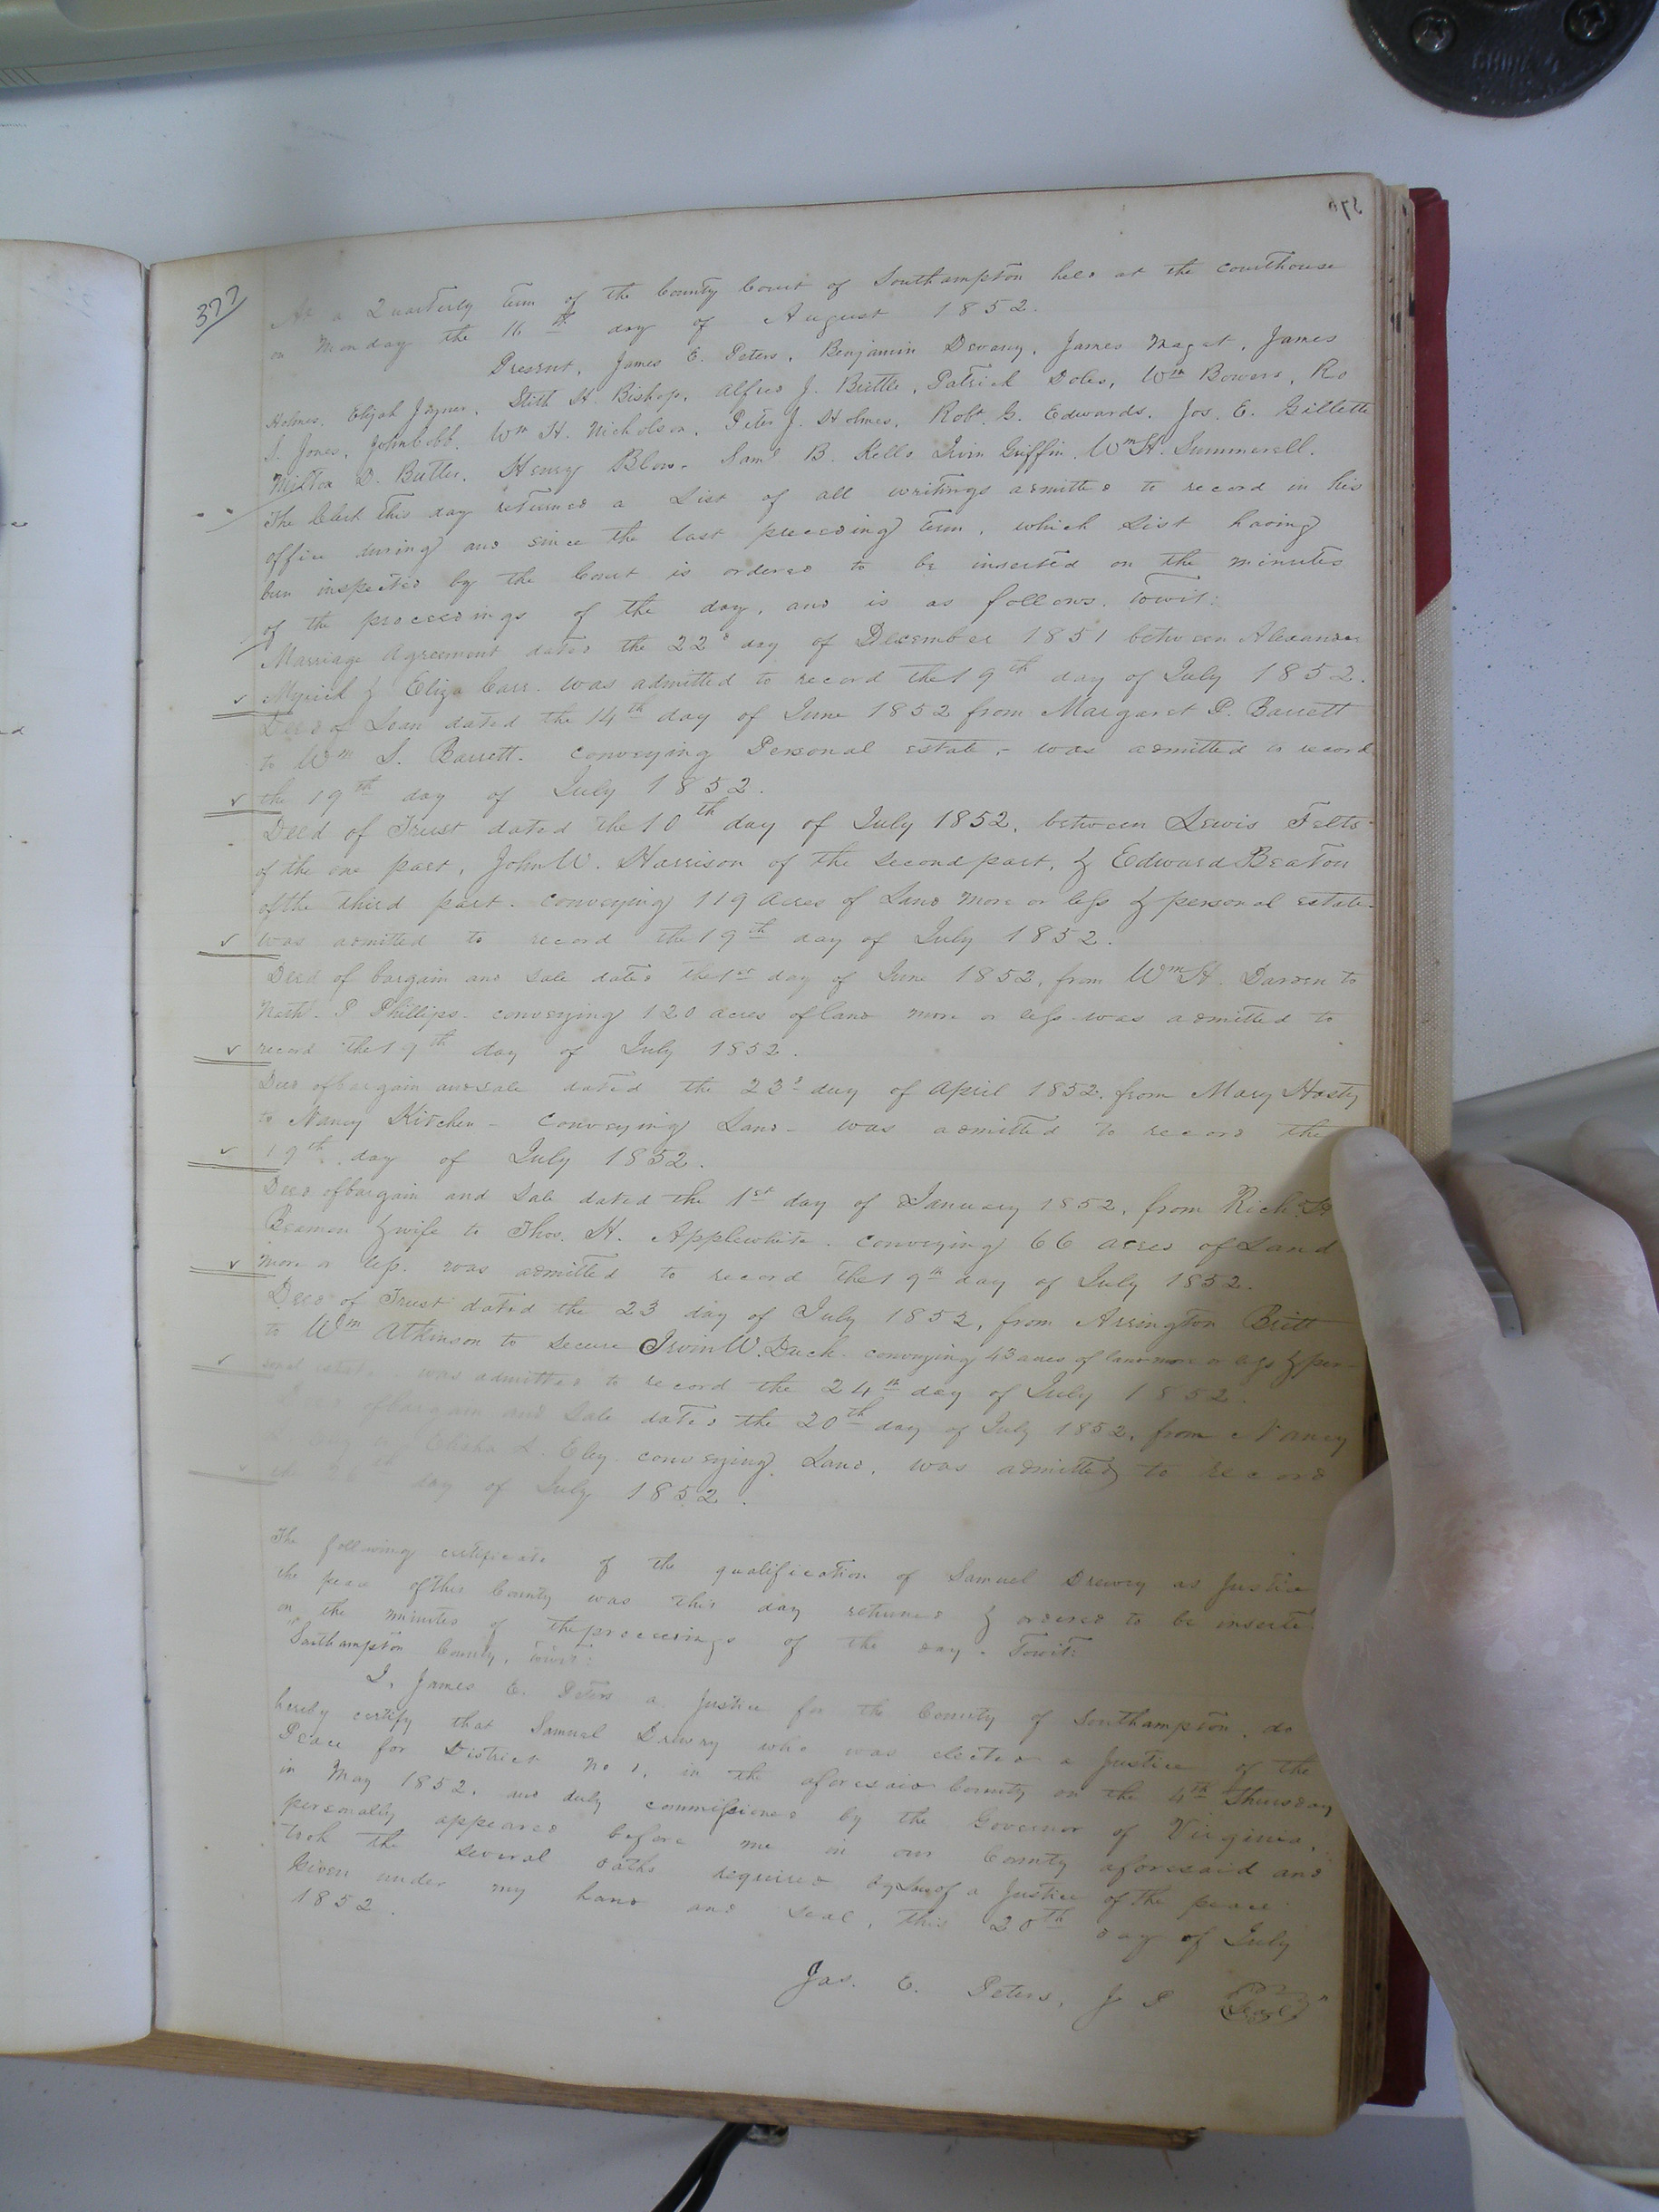 377
At a Quarterly term of the County Court of Southampton held at the courthouse
on Monday the 16th day of August 1852.
Present, James E. Peters, Benjamin Devany, James Maget, James
Holmes, Elijah Joyner, Stith H. Bishop, Alfred J. Butts, Patrick Doles, Wm Bowers, Ro
S. Jones, John Cobb, Wm H. Nicholson, Peter J. Holmes, Robt. G. Edwards, Jos. E. Gillette
Milton D. Butler, Henry Blow, Saml B. Kello, Irvin Griffin, Wm H. Summerell.
The Clerk this day returned a List of all writings admitted to record in his
office during and since the last preceding term, which List having
been inspected by the Court is ordered to be inserted on the minutes
of the proceedings of the day, and is as follows, towit:
Marriage Agreement dated the 22d day of December 1851 between Alexander
Myrick & Eliza Carr. was admitted to record the 19th day of July 1852.
Deed of Loan dated the 14th day of June 1852 from Margaret P. Barrett
to Wm S. Barrett. conveying Personal estate, - was admitted to record
the 19th day of July 1852.
Deed of Trust dated the 10th day of July 1852, between Lewis Felts
of the one part, John W. Harrison of the second part, & Edward Beaton
of the third part. conveying 119 acres of Land more or less & personal estate
was admitted to record the 19th day of July 1852.
Deed of bargain and sale dated the 1st day of June 1852, from Wm H. Darden to
Nath. P Phillips. conveying 120 acres of land more or less was admitted to
record the 19th day of July 1852.
Deed of bargain and sale dated the 23d day of April 1852, from Mary Hasty
to Nancy Kitchen - conveying Land - was admitted to record the
19th day of July 1852.
Deed of bargain and sale dated the 1st day of January 1852, from Richd
Beaman & wife to Thos. H. Applewhite. conveying 66 acres of Land
more or less. was admitted to record the 19th day of July 1852.
Deed of Trust dated the 23 day of July 1852, from Arrington Britt
to Wm Atkinson to secure Irvin W. Duck. conveying 43 acres of land more or less & per-
sonal estate. was admitted to record the 24th day of July 1852.
of bargain and sale dated the 20th day of July 1852, from Nancy
Elisha L. Eley. conveying Land, was admitted to record
the day of July 1852.
The following certificate of the qualification of Samuel Drewry as Justice
the peace of this County was this day returned & ordered to be inserted
on the minutes of the proceedings of the day. Towit:
Southampton County, towit:
I, James E. Peters a Justice for the County of Southampton, do
hereby certify that Samuel Drewry who was elected a Justice of the
Peace for District No 1, in the aforesaid County on the 4th Thursday
in May 1852, and duly commissioned by the Governor of Virginia,
personally appeared before me in our County aforesaid and
took the several oaths required by law of a Justice of the peace.
Given under my hand and seal, this 20th day of July
1852.
Jas. E. Peters, J P Seal